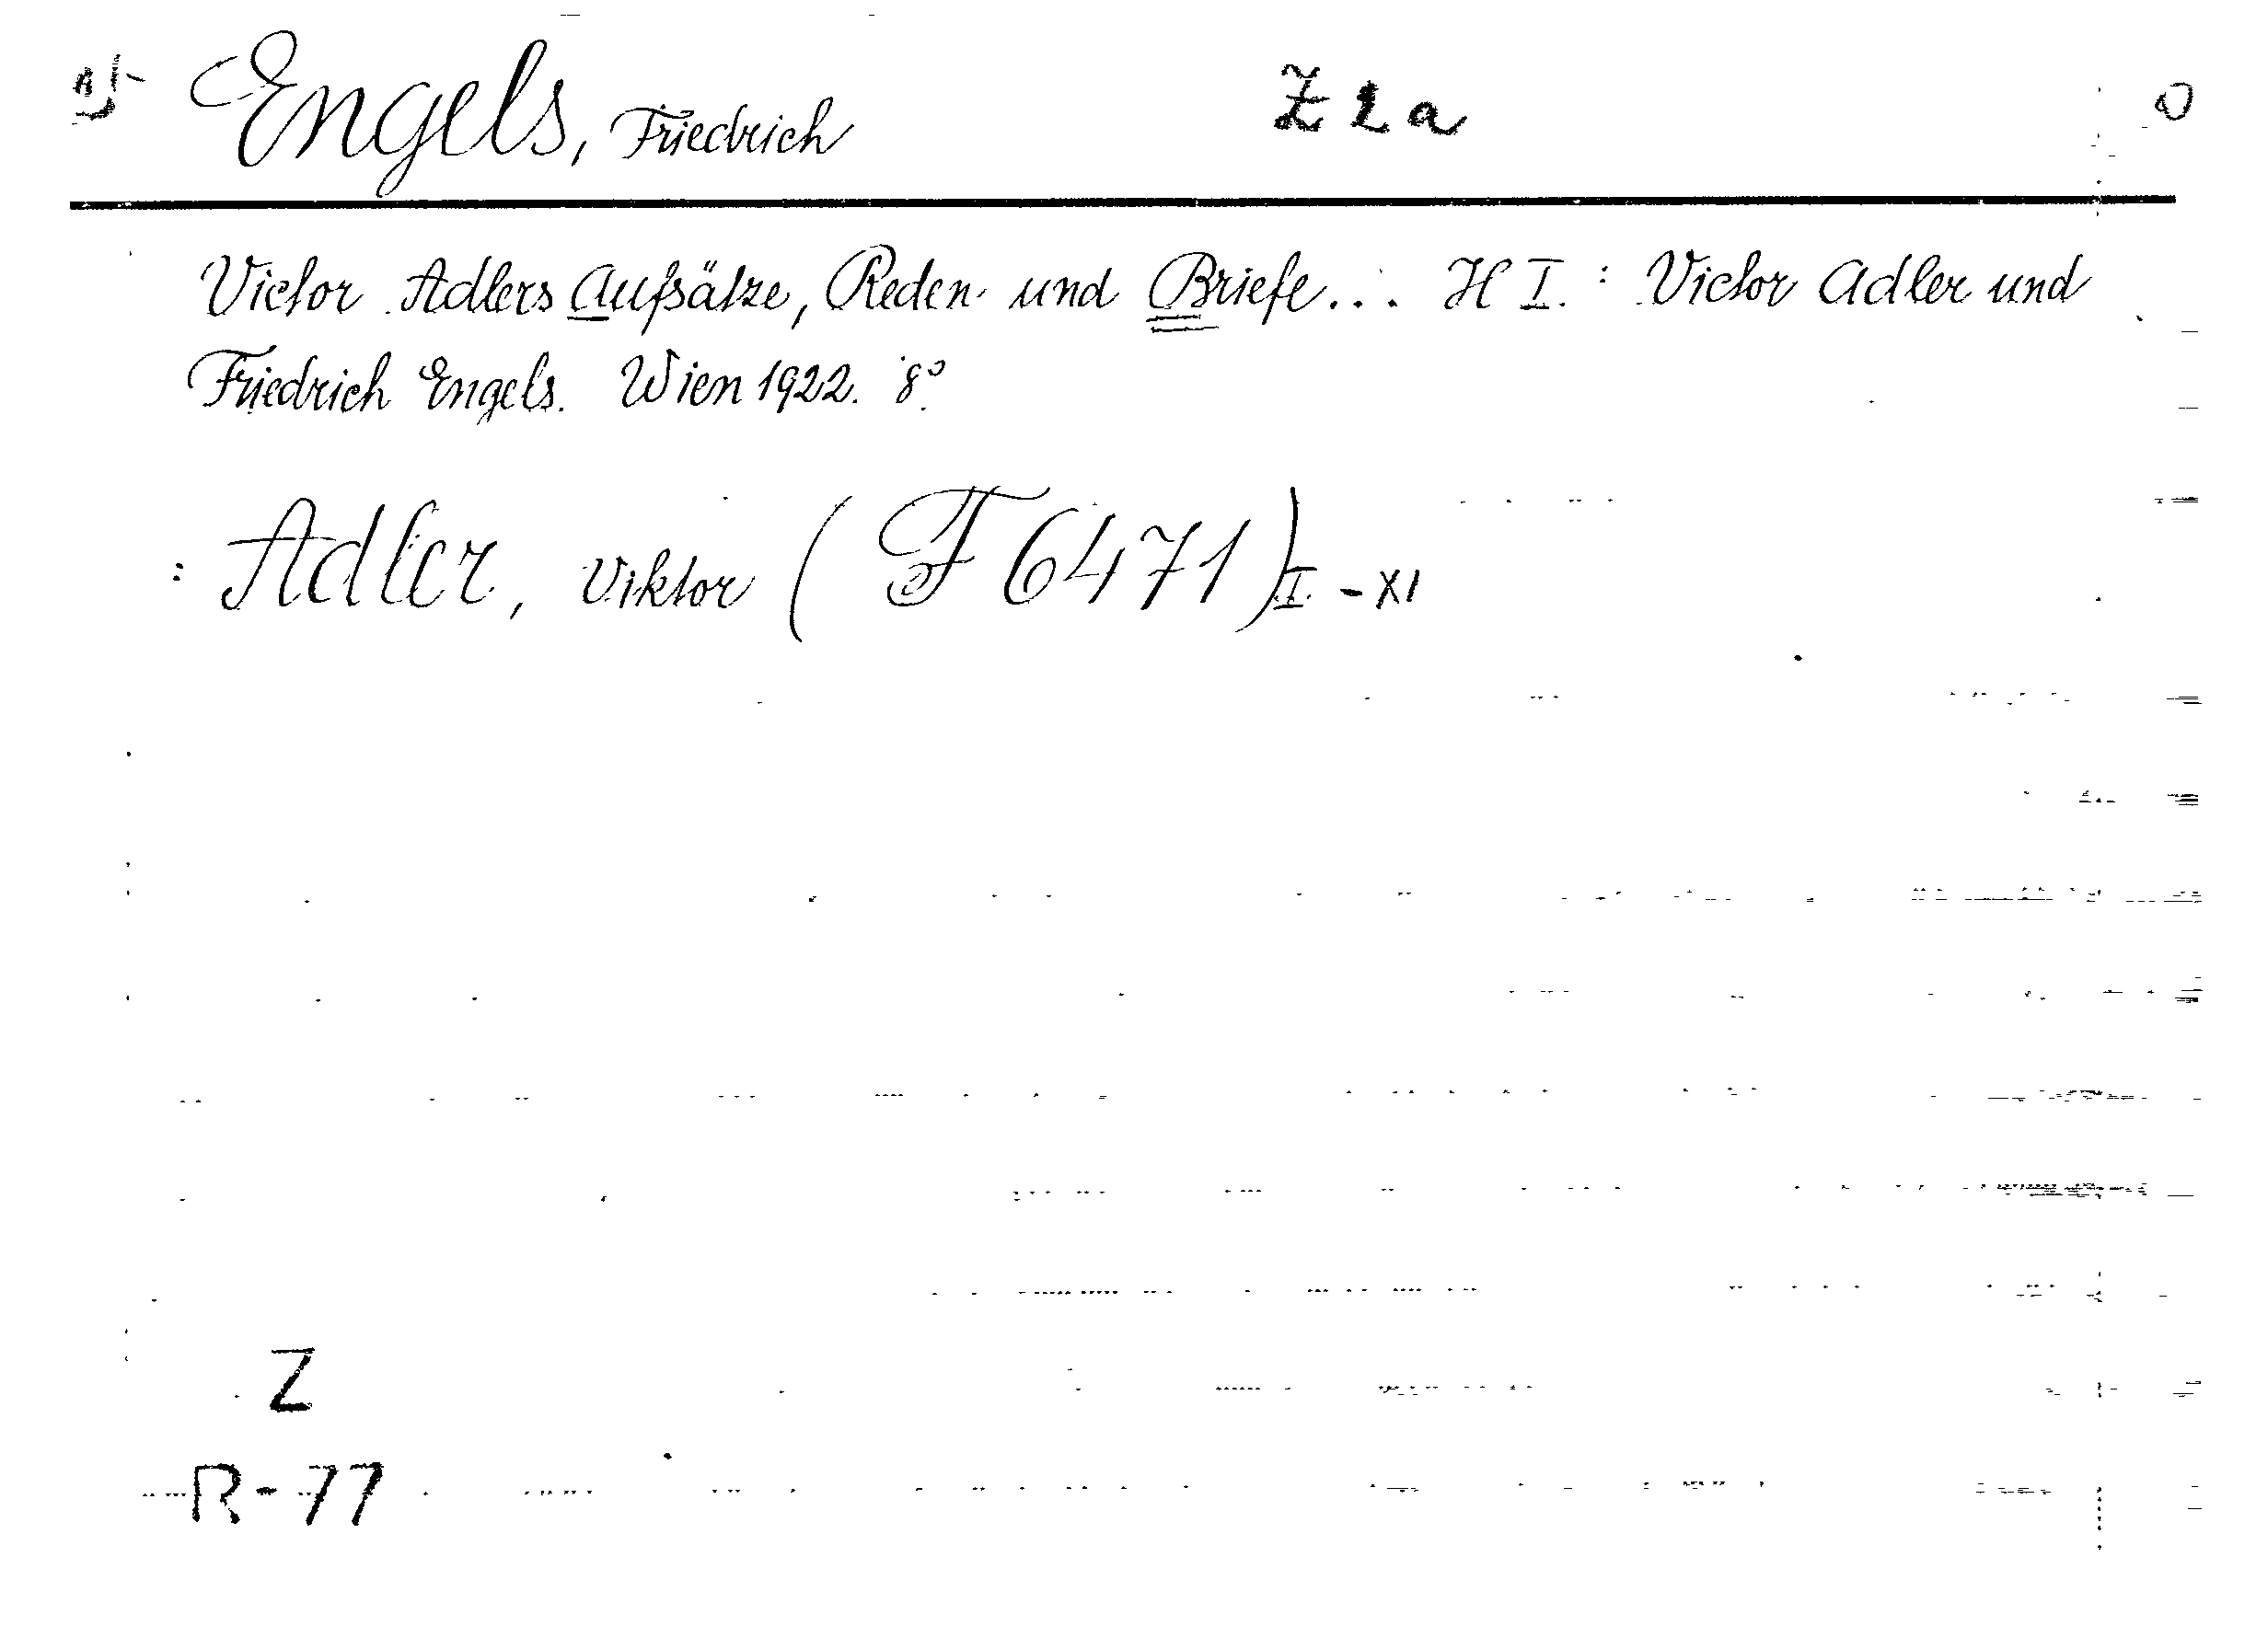 Engels, Friedrich Z 2 a
Victor Adlers Aufsätze, Reden und Briefe... H I.: Victor Adler und
Friedrich Engels. Wien 1922. 8°.
: Adler, Viktor (F 6471) I. - XI
Z
R-77